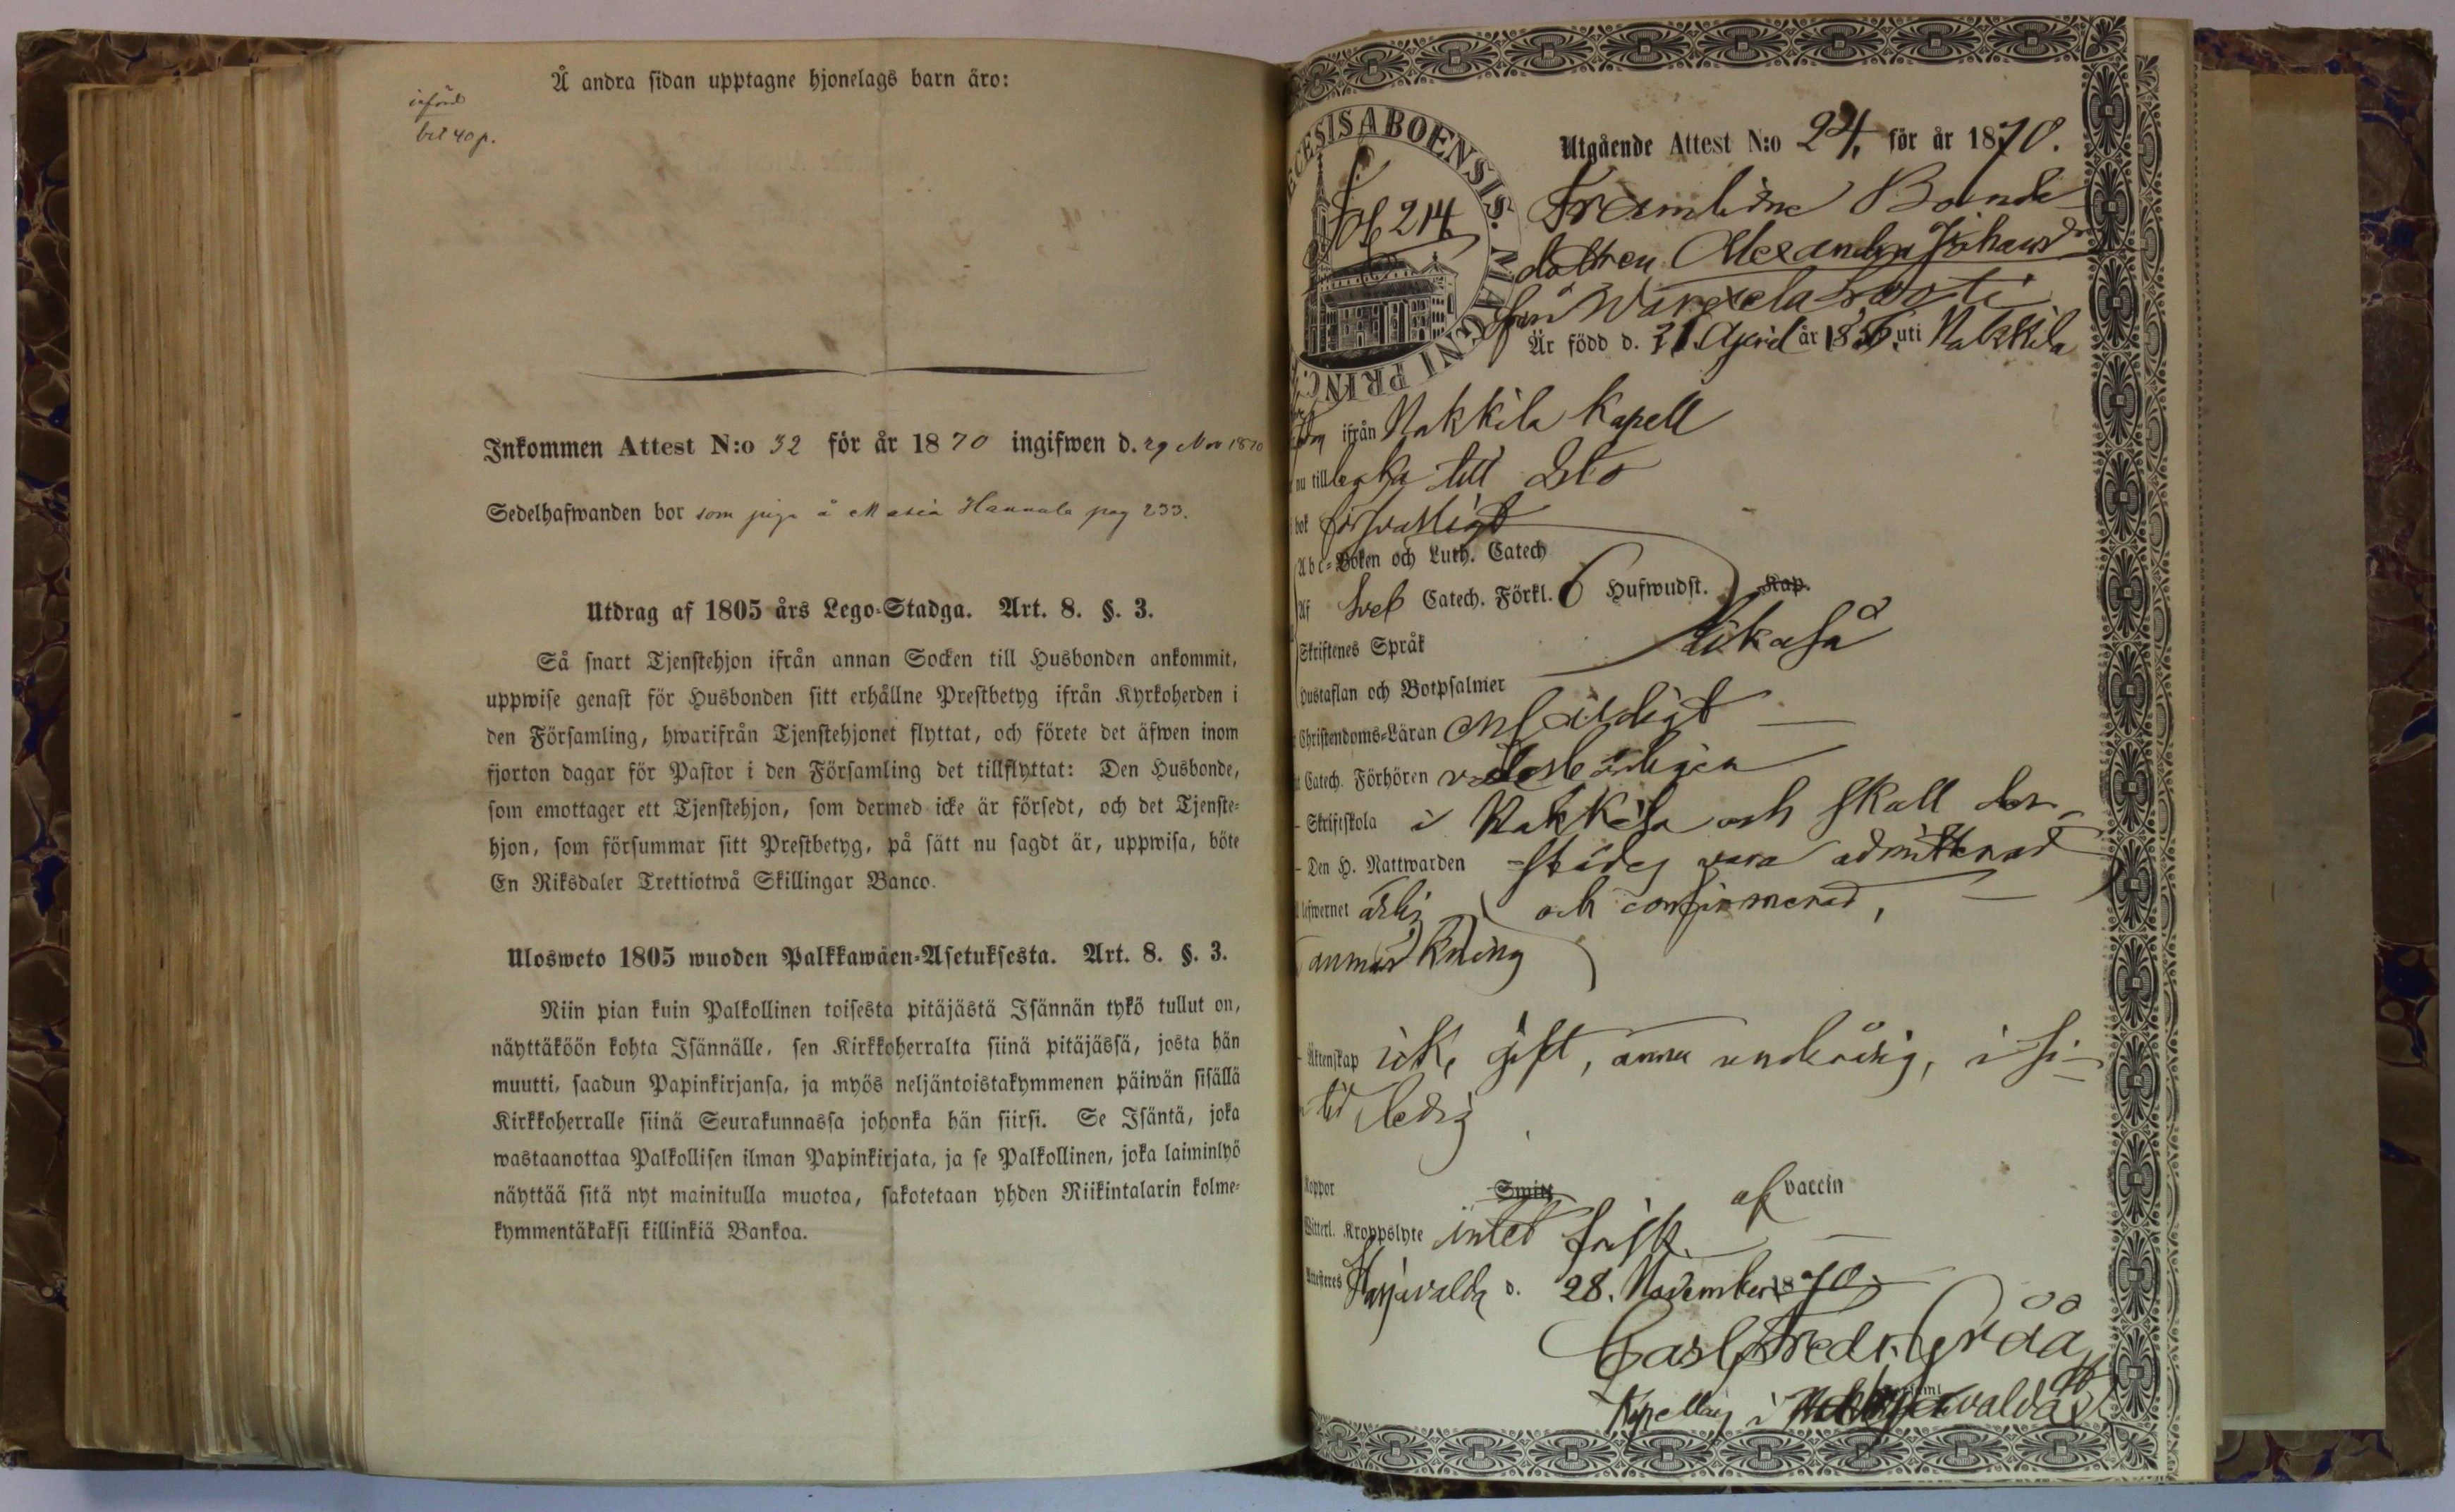 Å andra sidan upptagne hjonelags barn äro:
införd
bet 40 p.
Inkommen Attest N:o 32 för år 1870 ingifwen d. 29 Nov 1870
Sedelhafwanden bor som piga å Masia Hannula pag 233.
Utdrag af 1805 års Lego-Stadga. Art. 8. §. 3.
Så snart Tjenstehjon ifrån annan Socken till Husbonden ankommit,
uppwise genast för Husbonden sitt erhållne Prestbetyg ifrån Kyrkoherden i
den Församling, hwarifrån Tjenstehjonet flyttat, och förete det äfwen inom
fjorton dagar för Pastor i den Församling det tillflyttat: Den Husbonde,
som emottager ett Tjenstehjon, som dermed icke är försedt, och det Tjenste-
hjon, som försummar sitt Prestbetyg, på sätt nu sagdt är, uppwisa, böte
En Riksdaler Trettiotwå Skillingar Banco.
Ulosweto 1805 wuoden Palkkawäen-Asetuksesta. Art. 8. §. 3.
Niin pian kuin Palkollinen toisesta pitäjästä Isännän tykö tullut on,
näyttäköön kohta Isännälle, sen Kirkkoherralta siinä pitäjässä, josta hän
muutti, saadun Papinkirjansa, ja myös neljäntoistakymmenen päiwän sisällä
Kirkkoherralle siinä Seurakunnassa johonka hän siirsi. Se Isäntä, joka
wastaanottaa Palkollisen ilman Papinkirjata, ja se Palkollinen, joka laiminlyö
näyttää sitä nyt mainitulla muotoa, sakotetaan yhden Riikintalarin kolme-
kymmentäkaksi killinkiä Bankoa.
ECESIS ABOENSIS. MAGNI PRINC.
Fol 214
Utgående Attest N:o 24, för år 1870.
Framlidne Bonde
dottren Alexandra Johansdr
från
Är född d. 21. April år uti Nakkila
ifrån Nakkila Kapell
nu till
bok försvarligt
Abc-Boken och Luth. Catech
Af Sveb Catech. Förkl. 6 Hufwudst. Kap.
Skriftenes Språk likaså
Hustaflan och Botpsalmer
Christendoms-Läran
Catech. Förhören vederbörligen
Skriftskola i Nakkila och skall der-
Den H. Nattwarden städes vara admitterad
lefwernet ärlig och confirmerad,
anmärkning
Äktenskap ick gift, ännu underårig, i si-
tid ledig
Koppor Smitt af vaccin
Witterl. Kroppslyte intet frisk.
Attesteres Harjavalda d. 28. November 1870.
Carl Fredr. Gråå
Kapellan i Harjavalda